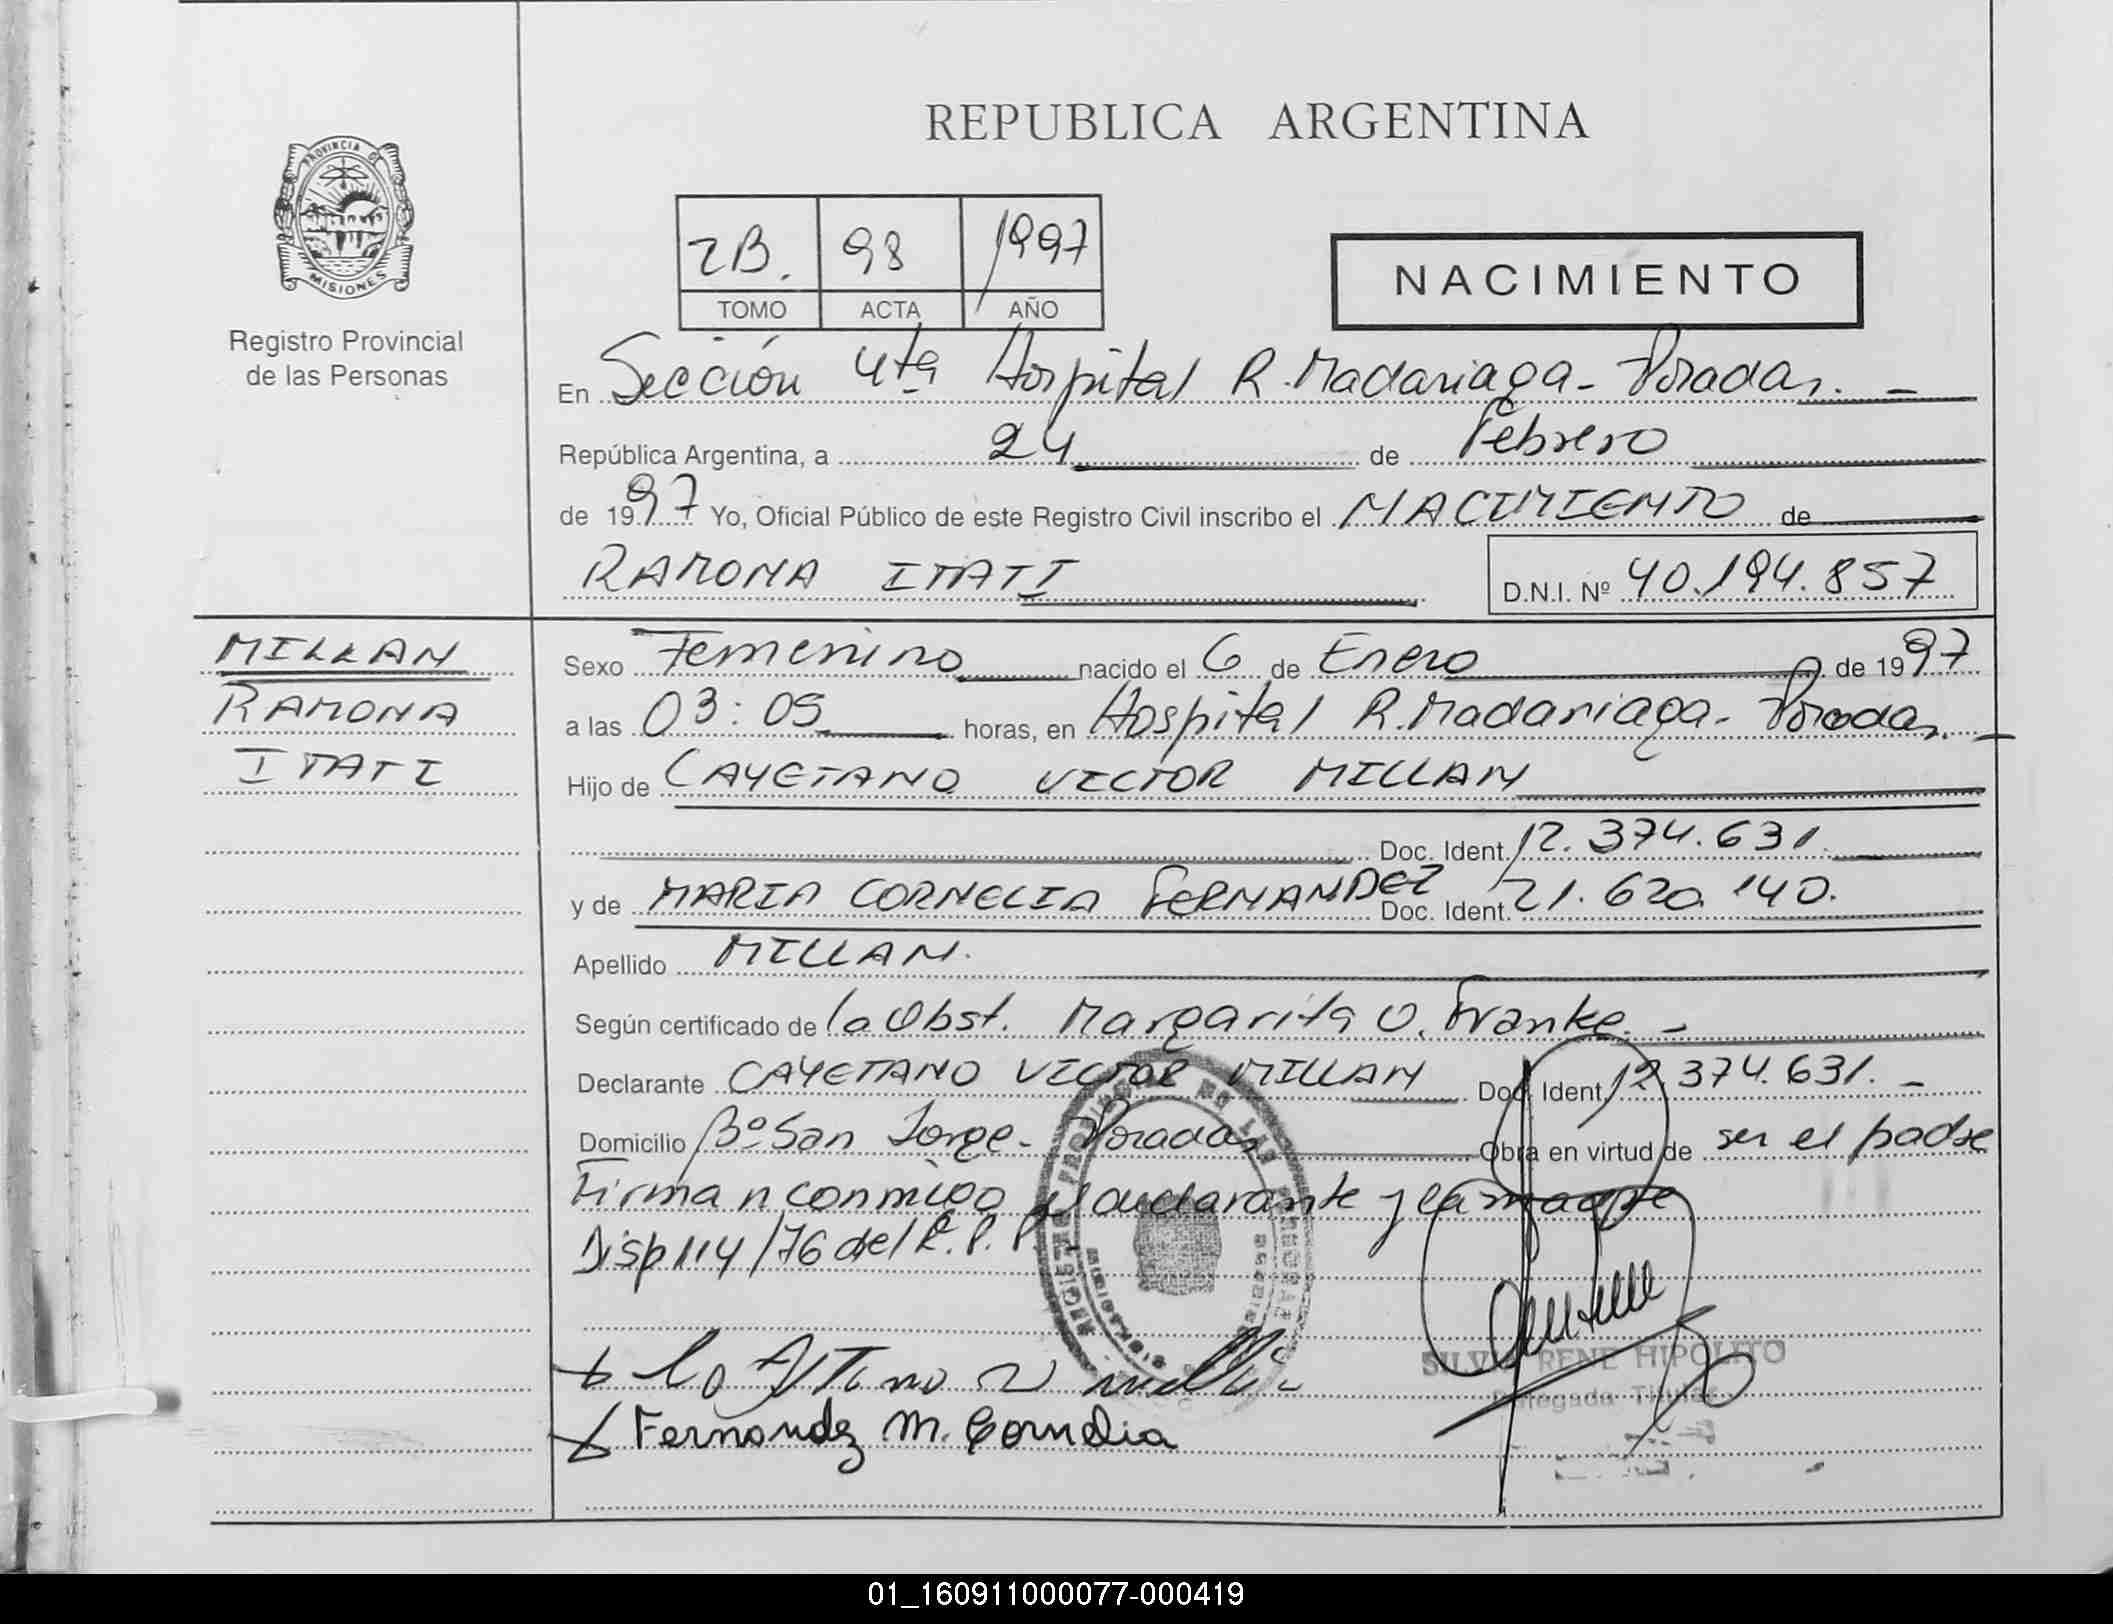 REPUBLICA ARGENTINA
PROVINCIA DE
MISIONES
Registro Provincial
de las Personas
2B. 98 1997
TOMO ACTA AÑO
NACIMIENTO
En Sección 4ta Hospital R. Madariaga - Posadas. -
República Argentina, a 24 de Febrero
de 1997 Yo, Oficial Público de este Registro Civil inscribo el NACIMIENTO de
RAMONA ITATI D.N.I. Nº 40.194.857
MILLAN
RAMONA
ITATI
Sexo Femenino nacido el 6 de Enero de 1997
a las 03:05 horas, en Hospital R. Madariaga - Posadas. -
Hijo de CAYETANO VICTOR MILLAN
Doc. Ident. 12.374.631.
y de MARIA CORNELIA FERNANDEZ Doc. Ident. 21.620.140.
Apellido MILLAN.
Según certificado de la Obst. Margarita O. Franke. -
Declarante CAYETANO VICTOR MILLAN Doc. Ident. 12.374.631. -
Domicilio Bº San Jorge - Posadas Obra en virtud de ser el padre
Firman conmigo el declarante y la madre
Disp 114/76 del R. P. P.
SILVIO RENE HIPOLITO
Delegado Titular
Fernandez M. Cornelia
01_160911000077-000419